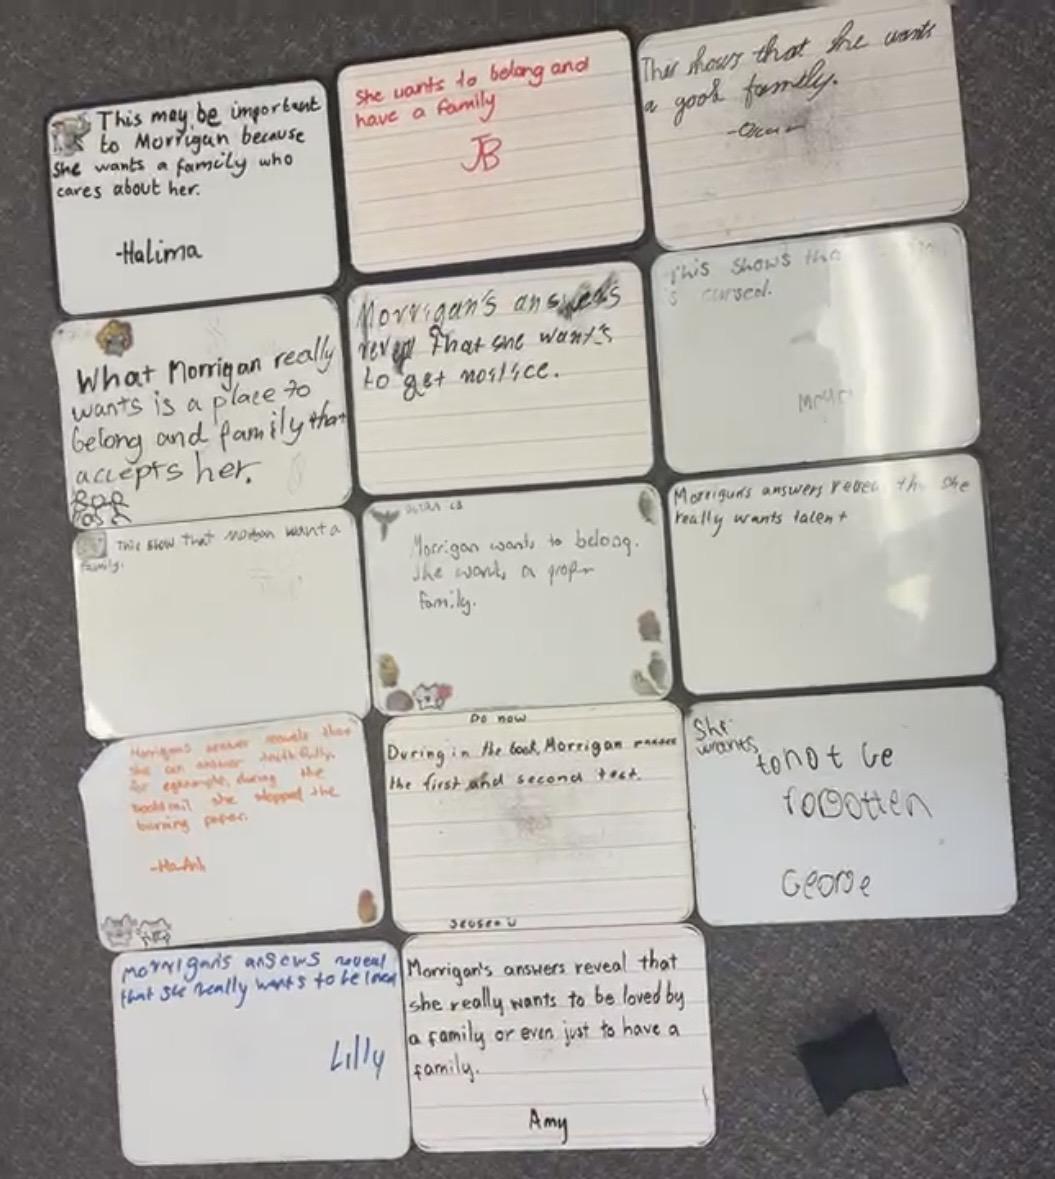 This may be important
to Morrigan because
she wants a family who
cares about her.
-Halima
She wants to belong and
have a family
JB
This shows that she wants
a good family.
What Morrigan really
wants is a place to
belong and family that
accepts her.
Morrigan's
that she wants
to get
This shows
is cursed.
This show that want a
family.
Morrigan wants to belong.
She wants a
family.
Morrigan's answers
really wants talent
Morrigan's answer reveals that
she can answer
for during the
she stopped the
burning paper.
-Ha Anh
Do now
During in the book, Morrigan passes
the first and second test.
She
wants
to not be
George
Morrigan's reveal
that she really wants to be loved
Lilly
Morrigan's answers reveal that
she really wants to be loved by
a family or even just to have a
family.
Amy